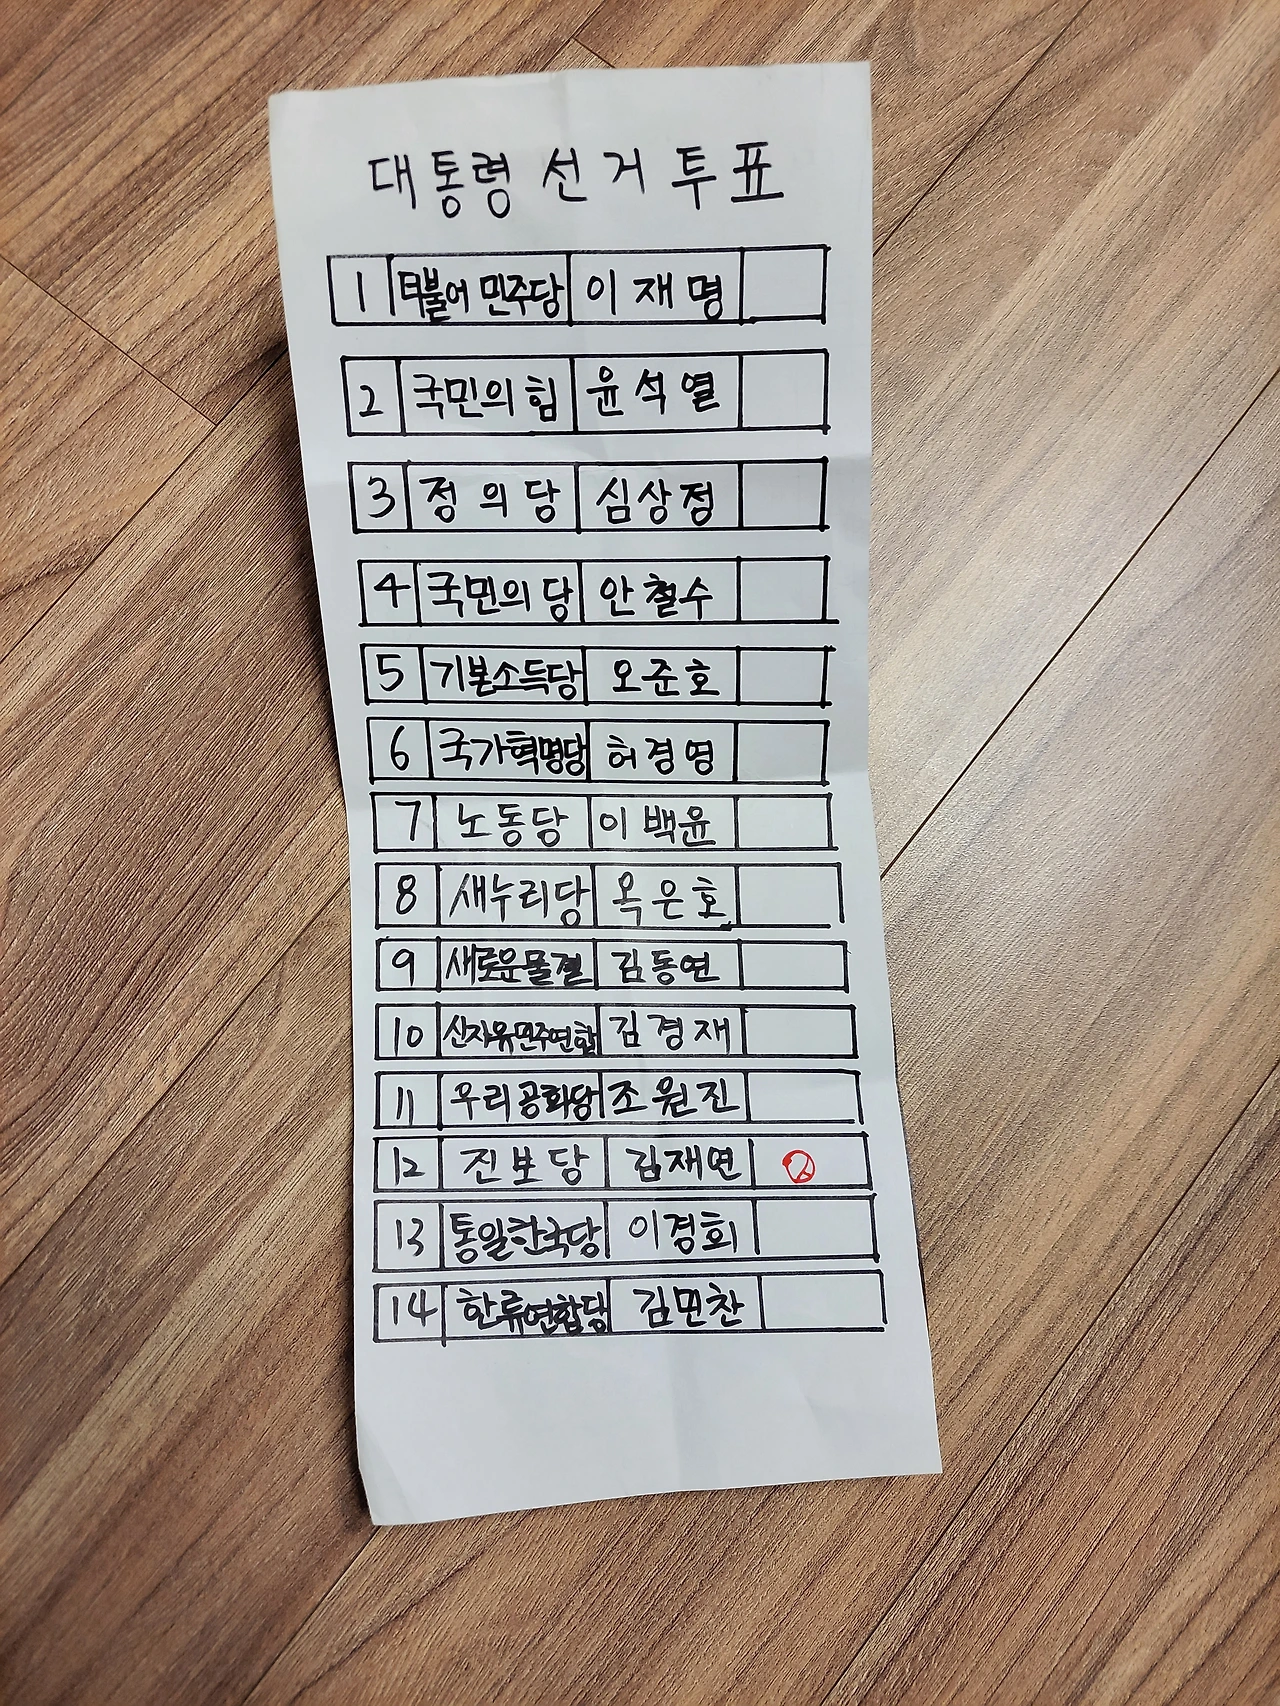 대통령 선거 투표
1 더불어 민주당 이재명
2 국민의 힘 윤석열
3 정의당 심상정
4 국민의 당 안철수
5 기본소득당 오준호
6 국가혁명당 허경영
7 노동당 이백윤
8 새누리당 옥은호
9 새로운물결 김동연
10 신자유민주연합 김경재
11 우리공화당 조원진
12 진보당 김재연
13 통일한국당 이경희
14 한류연합당 김민찬